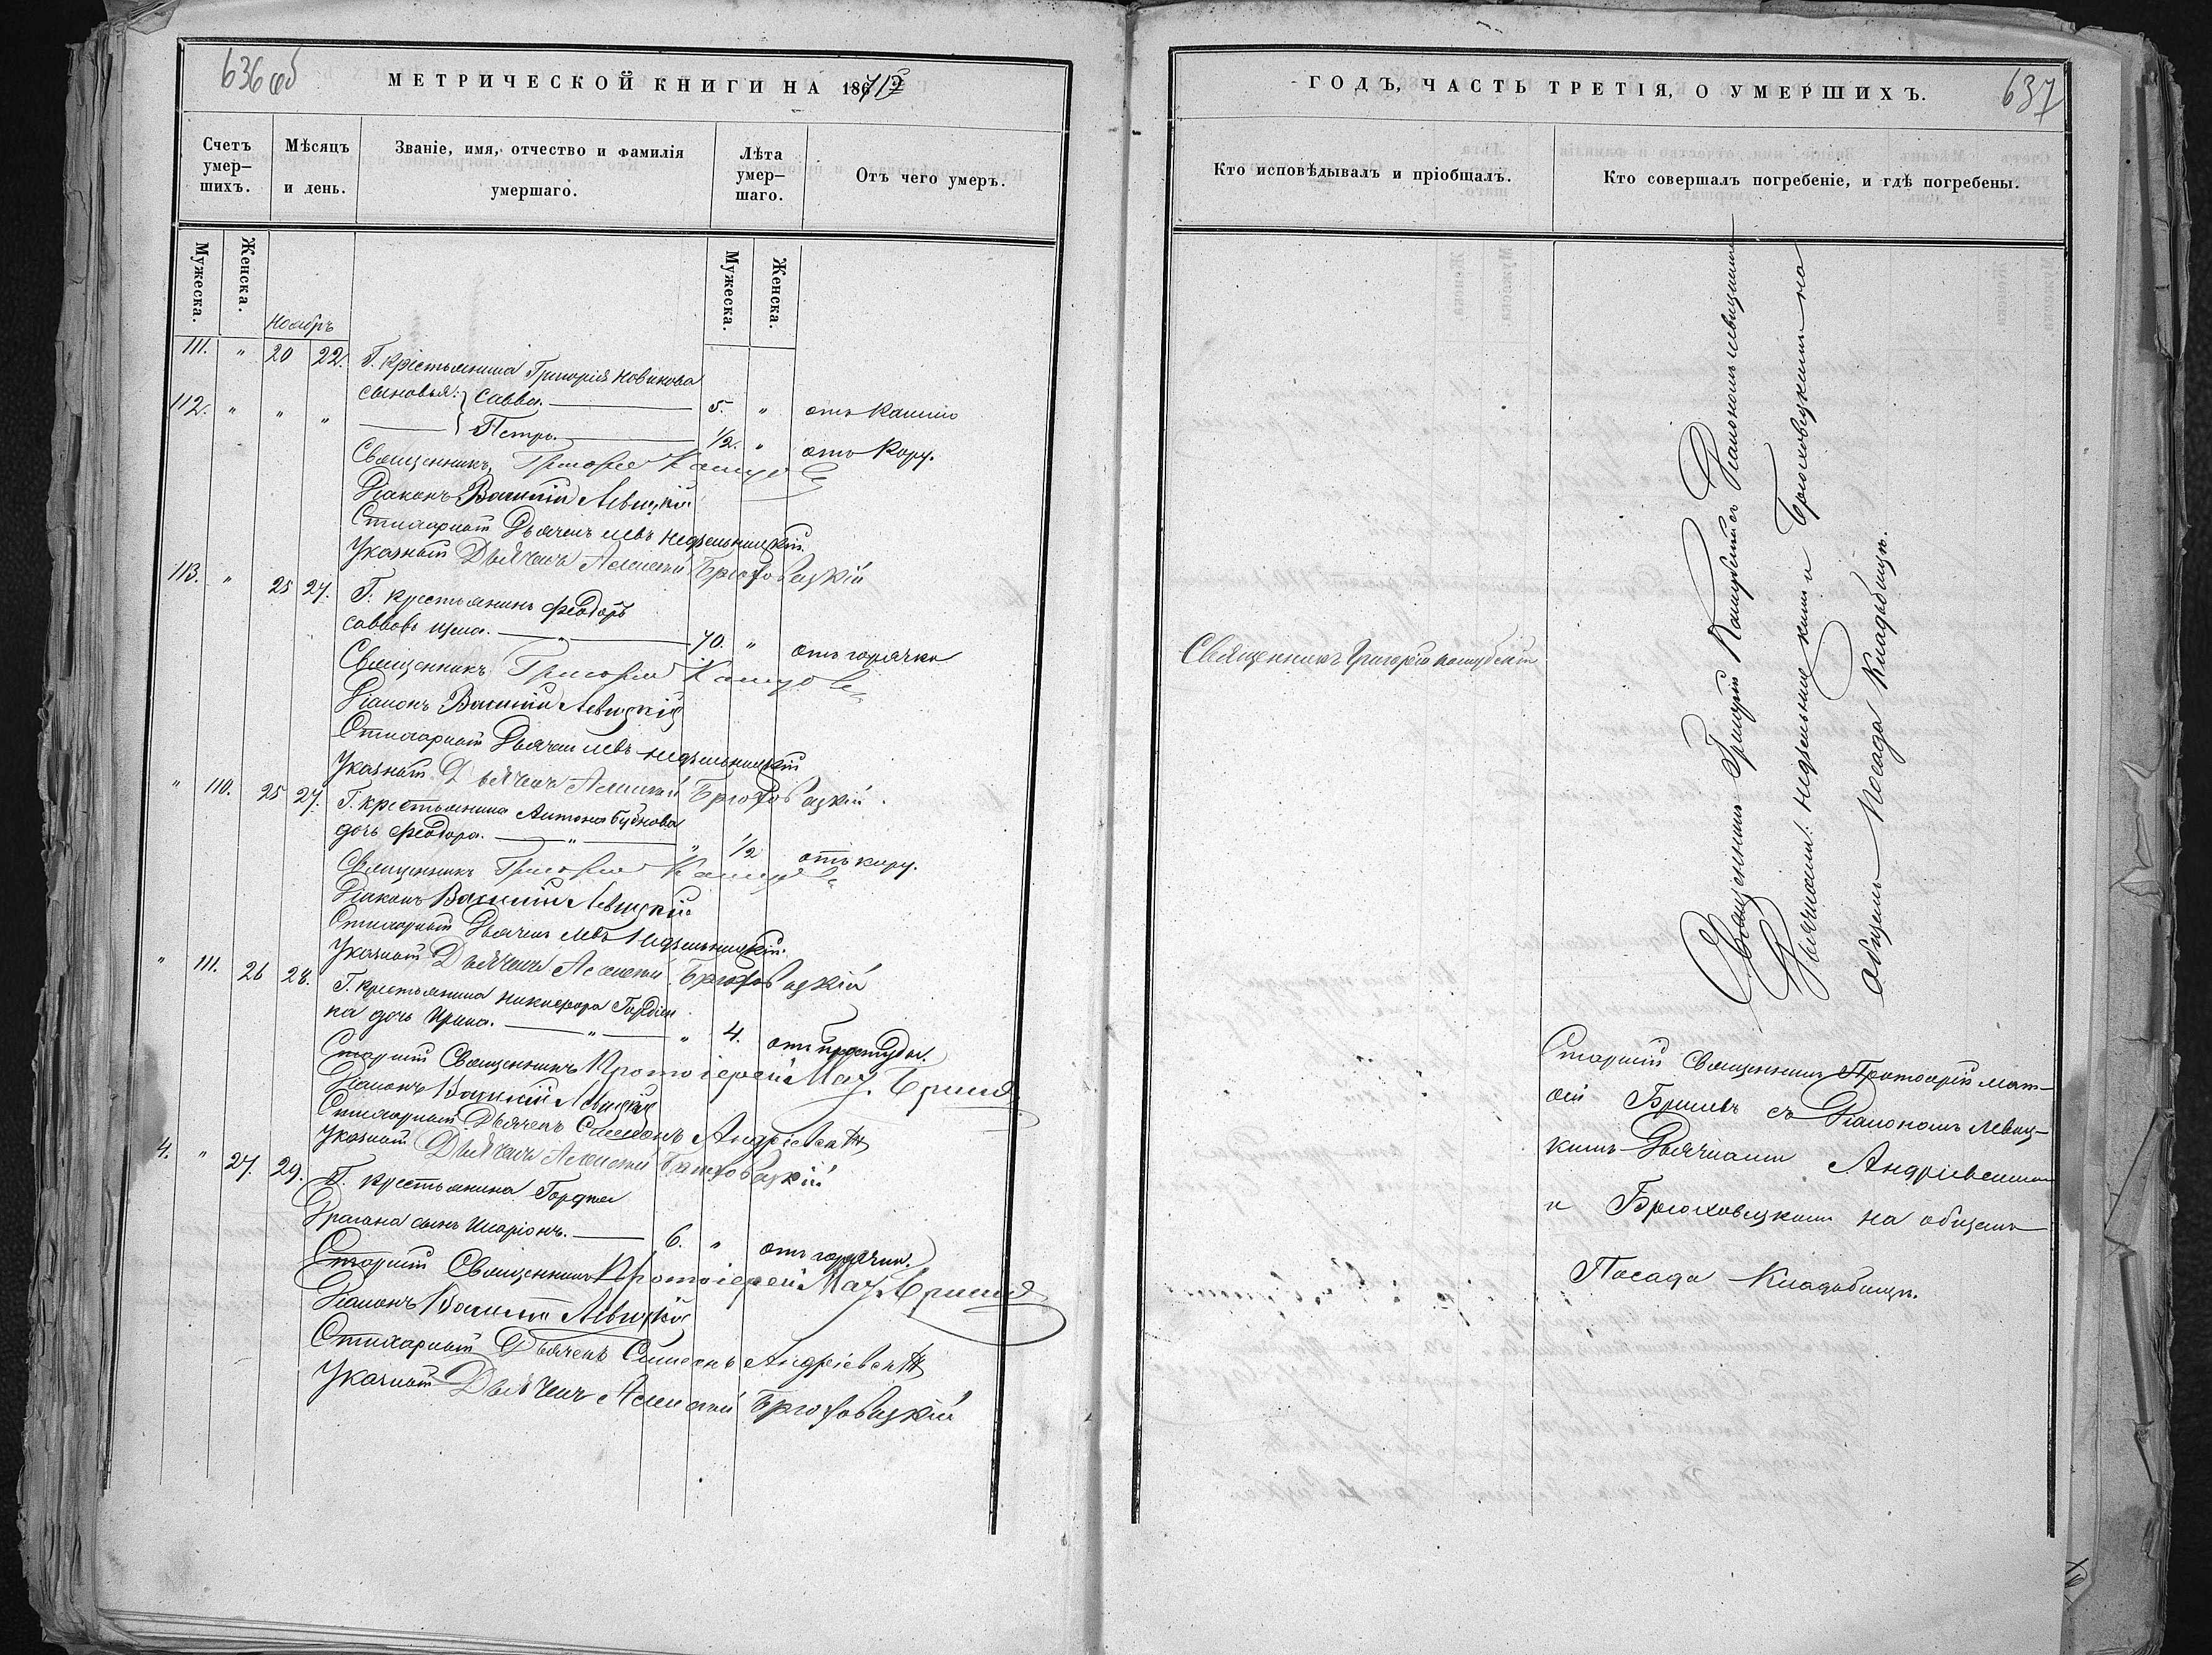 636 об
МЕТРИЧЕСКОЙ КНИГИ НА 186
Счетъ умер-шихъ.
Мѣсяцъ и день.
Званіе, имя, отчество и фамилія умершаго.
Лѣта умер-шаго.
Отъ чего умеръ.
Мужеска.
Женска.
Мужеска.
Женска.
Ноябрь
111. " 20 22. Г. Крестьянина Григорія Новикова
сыновья: Савва. 5. " отъ кашлю
112. " " " Петръ. 1/2. " отъ кору.
Священникъ Григорій
Діаконъ Василій Левицкій
Стихарный Дьячекъ Левъ Недзельницкій.
Указный Дьячекъ Алексій Брюховецкій
113. " 25 27. Г. крестьянинъ Феодоръ
Саввовъ 70. " отъ горячки
Священникъ Григорій
Діаконъ Василій Левицкій
Стихарный Дьячекъ Левъ Недзельницкій
Указный Дьячекъ Алексій Брюховецкій.
" 110. 25 27. Г. крестьянина Антона Бубнова
дочь Феодора. " " 1/2 отъ кору.
Священникъ Григорій
Діаконъ Василій Левицкій
Стихарный Дьячекъ Левъ Недзельницкій.
Указный Дьячекъ Алексій Брюховецкій
" 111. 26 28. Г. крестьянина Никифора Гордіен
ка дочь Ирина. " " 4. отъ простуды.
Старшій Священникъ Протоіерей Мат.
Діаконъ Василій Левицкій
Стихарный Дьячекъ Симеонъ Андріевскій
Указный Дьячекъ Алексій Брюховецкій
4. " 27. 29. Г. крестьянина Гордѣя
Драгана сынъ Иларіонъ. 6. " отъ горячки.
Старшій Священникъ Протоіерей Мат.
Діаконъ Василій Левицкій
Стихарный Дьячекъ Симеонъ Андріевскій
Указный Дьячекъ Алексій Брюховецкій
637
ГОДЪ, ЧАСТЬ ТРЕТІЯ, О УМЕРШИХЪ.
Кто исповѣдывалъ и пріобщалъ.
Кто совершалъ погребеніе, и гдѣ погребены.
Священникъ Григорій
Священникъ Григорій съ Діакономъ Левицкимъ
Дьячками: Недзельницкимъ и Брюховецкимъ на
общемъ Посада Кладбищѣ.
Старшій Священникъ Протоіерей Мат-
ѳій съ Діакономъ Левиц-
кимъ Дьячками Андріевскимъ
и Брюховецкимъ на общемъ
Посада Кладбищѣ.